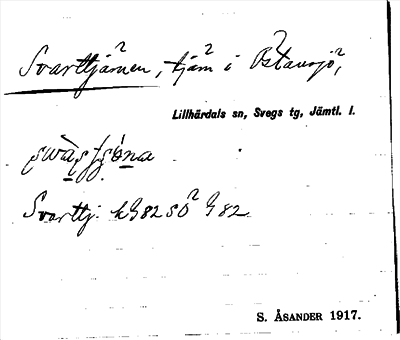 Svarttjärnen, tjärn i Östansjö,
Lillhärdals sn, Svegs tg, Jämtl. l.
Svarttj. k 982 sö 982
S. ÅSANDER 1917.